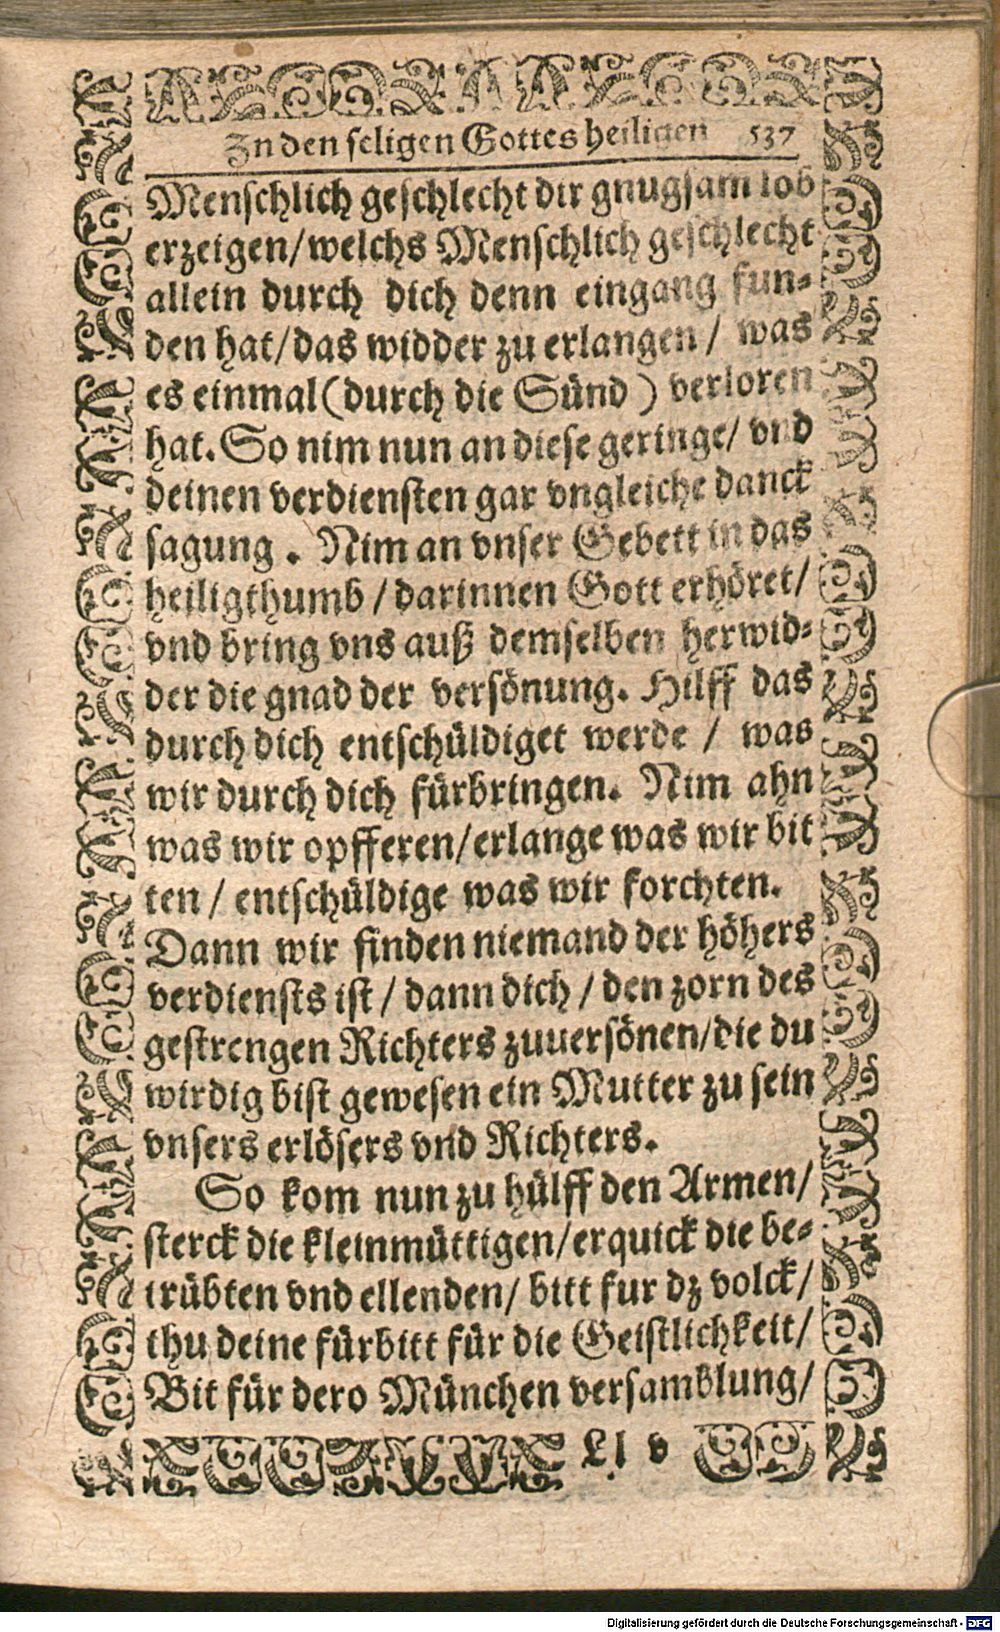 In den seligen Gottes heiligen 537
Menschlich geschlecht dir gnugsam lob
erzeigen/welchs Menschlich geschlecht
allein durch dich denn eingang fun⸗
den hat/das widder zu erlangen/ was
es einmal(durch die Sünd) verloren
hat. So nim nun an diese geringe/ vnd
deinen verdiensten gar vngleiche danck
sagung. Nim an vnser Gebett in das
heiligthumb/darinnen Gott erhöret/
vnd bring vns auß demselben herwid⸗
der die gnad der versönung. Hilff das
durch dich entschüldiget werde/ was
wir durch dich fürbringen. Nim ahn
was wir opfferen/erlange was wir bit
ten/ entschüldige was wir forchten.
Dann wir finden niemand der höhers
verdiensts ist/ dann dich/ den zorn des
gestrengen Richters zuuersönen/die du
wirdig bist gewesen ein Mutter zu sein
vnsers erlösers vnd Richters.
So kom nun zu hülff den Armen/
sterck die kleinmüttigen/erquick die be⸗
trübten vnd ellenden/ bitt fur dz volck/
thu deine fürbitt für die Geistlichkeit/
Bit für dero München versamblung/
Ll v
Digitalisierung gefördert durch die Deutsche Forschungsgemeinschaft - DFG